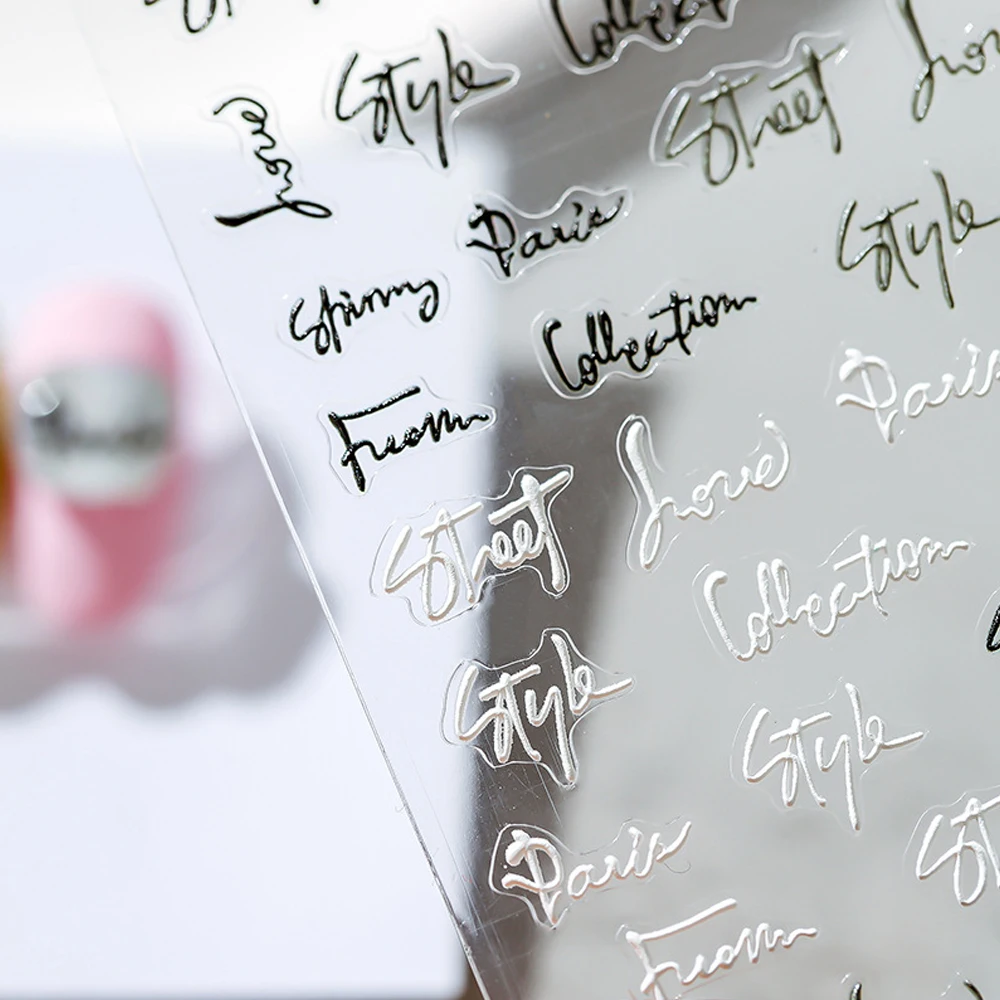 Collection
Style
Street
Love
Love
Paris
Style
Spinmy
Collection
Paris
From
Love
Street
Collection
Style
Style
Paris
St
From